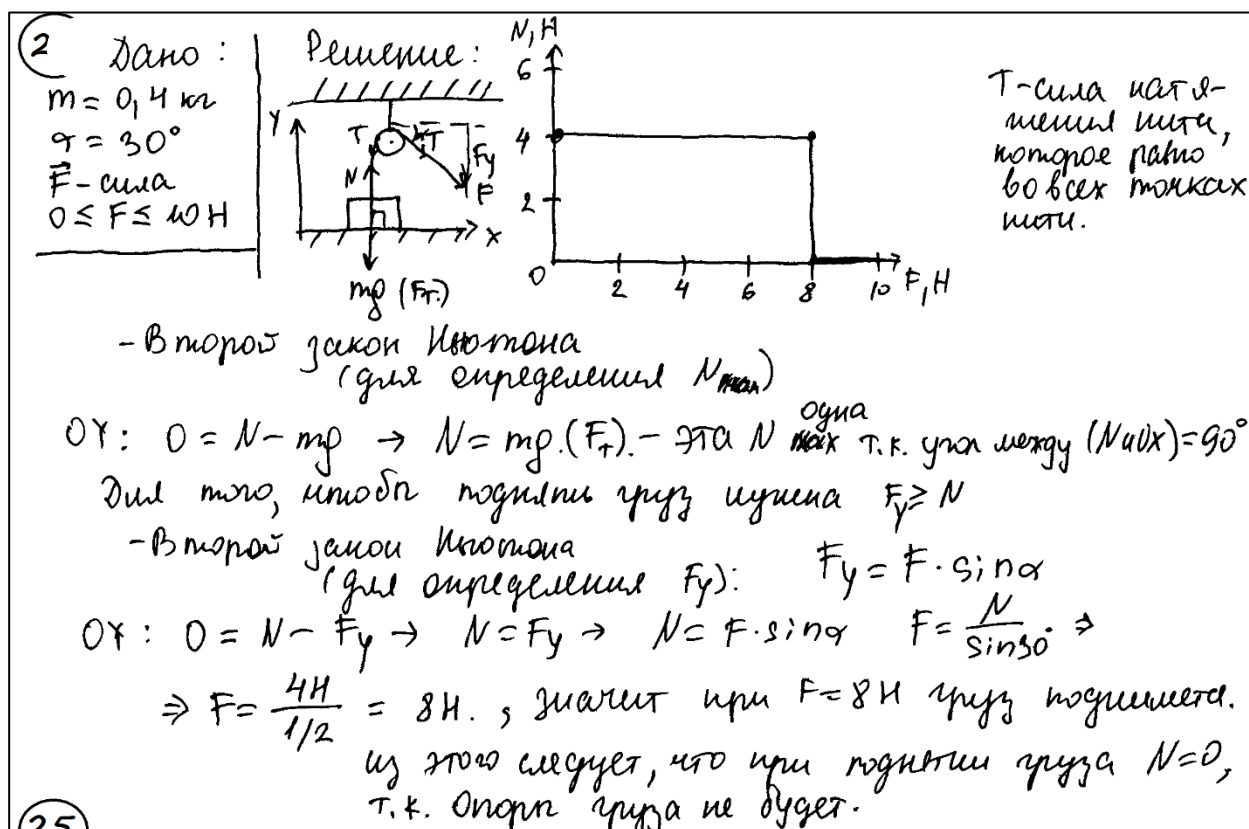 2
Дано:
m = 0,4 кг
α = 30°
F⃗ - сила
0 ≤ F ≤ 10 Н
Решение:
Y
T
T
Fy
F
N
X
mg (Fт.)
N, Н
6
4
2
0
2
4
6
8
10
F, Н
T-сила натя-
жения нити,
которое равно
во всех точках
нити.
- Второй закон Ньютона
(для определения N)
OY: 0 = N - mg → N = mg.(Fт). - эта N одна т.к. угол между (N и Ox) = 90°
Для того, чтобы поднять груз нужна Fy ≥ N
- Второй закон Ньютона
(для определения Fy): Fy = F · sinα
OY: 0 = N - Fy → N = Fy → N = F · sinα F = N/sin30° ⇒
⇒ F = 4Н/1/2 = 8Н., значит при F = 8Н груз поднимется.
из этого следует, что при поднятии груза N=0,
т.к. опоры груза не будет.
25